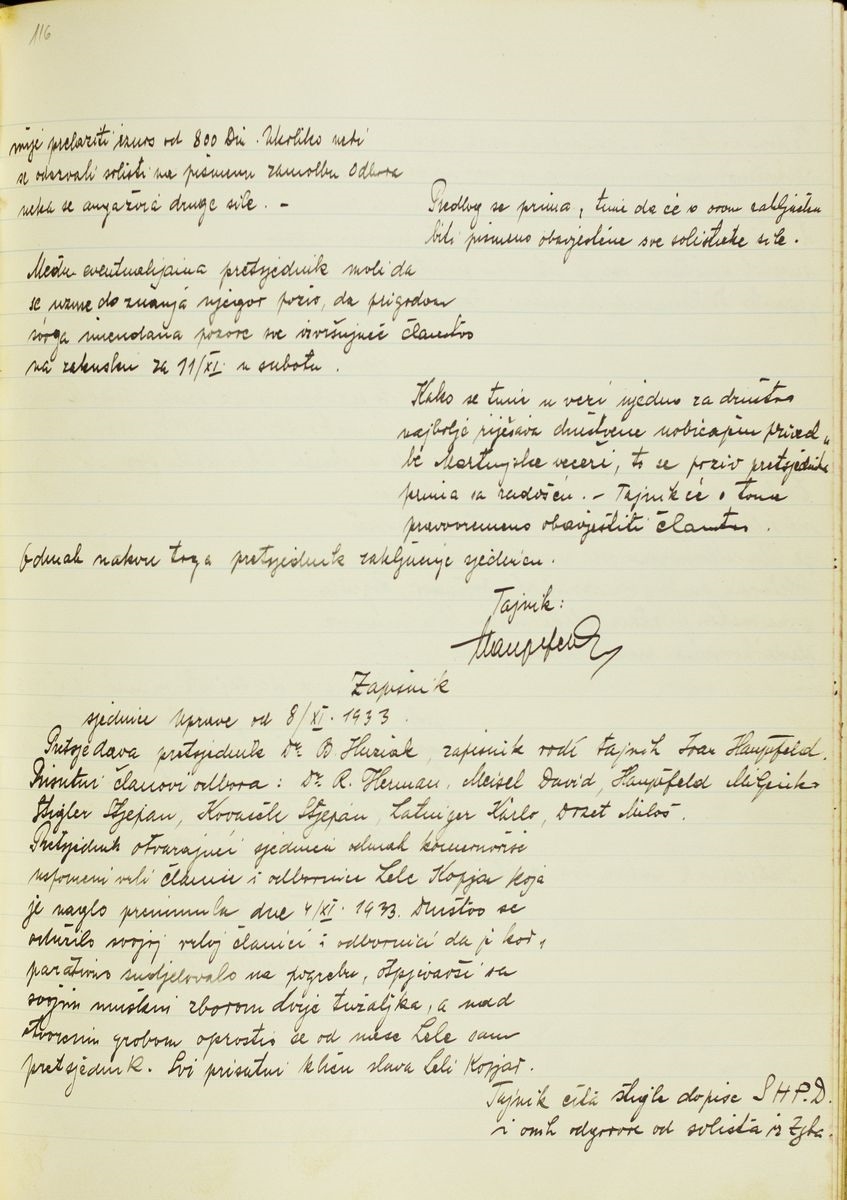 116
smije prelaziti iznos od 800 Din. Ukoliko nebi
se odazvali solisti na pismenu zamolbu Odbora
neka se angažira druge sile. –
Predlog se prima, time da će o ovom zaključku
biti pismeno obavještene sve solističke sile.
Među eventualijama pretsjednik moli da
se uzme do znanja njegov poziv, da prigodom
svoga imendana pozove sve izvršujuće članstvo
na zakusku za 11/XI. u subotu.
Kako se time u vezi ujedno za društvo
najbolje riješava društvene uobičajene prired„
be Martinjske večeri, to se poziv pretsjednika
prima sa radošću. – Tajnik će o tome
pravovremeno obavještiti članstvo.
Odmah nakon toga pretsjednik zaključuje sjednicu.
Tajnik:
Haupfeld
Zapisnik
sjednice Uprave od 8/XI. 1933.
Pretsjedava pretsjednik Dr. B Huziak, zapisnik vodi tajnik Ivan Haupfeld.
Prisutni članovi odbora: Dr. R. Herman, Meisel David, Haupfeld
Stigler Stjepan, Kovačić Stjepan, Latniger Karlo, Drzet Miloš.
Pretsjednik otvarajući sjednicu odmah komemoriše
uspomeni vrli članice i odbornice Lele Kopjar koja
je naglo preminula dne 4/XI. 1933. Društvo se
odužilo svojoj vrloj članici i odbornici da je kor„
parativno sudjelovalo na pogrebu, otpjevavši sa
svojim muškim zborom dvije tužaljke, a nad
otvorenim grobom oprostio se od nase Lele sam
pretsjednik. Svi prisutni kliču slava Leli Kopjar.
Tajnik čita stigle dopise S H P. D.
i onih odgovore od solista iz Zgba.